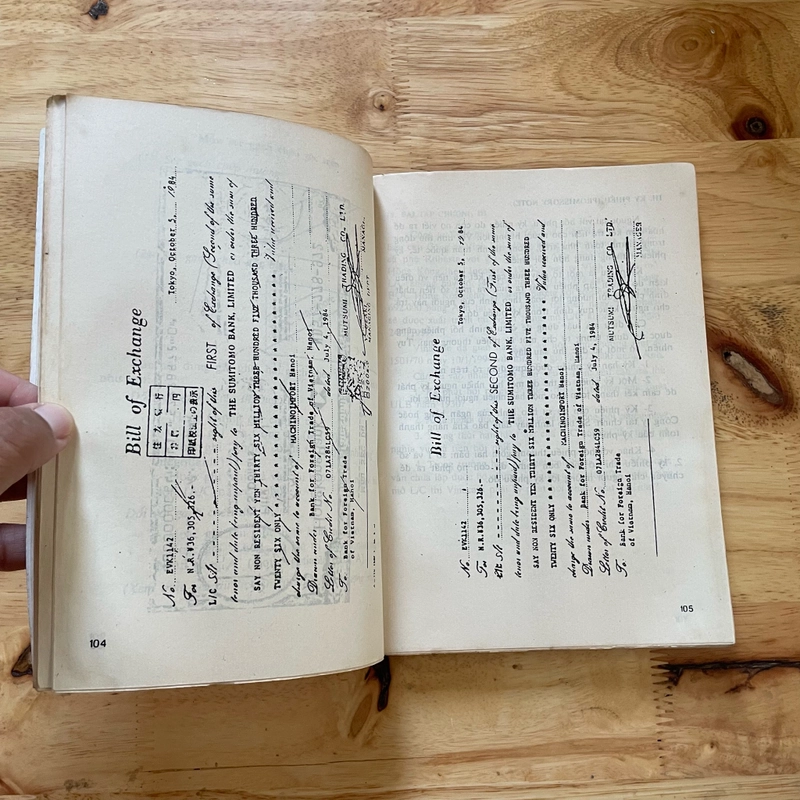 Bill of Exchange
No. EVK1142 Tokyo, October 5, 1984
For N.R.¥36,305,326.-
L/C St. sight of this FIRST of Exchange (Second of the same
tenor and date being unpaid) Pay to THE SUMITOMO BANK, LIMITED or order the sum of
SAY NON RESIDENT YEN THIRTY SIX MILLION THREE HUNDRED FIVE THOUSAND THREE HUNDRED
TWENTY SIX ONLY Value received and
charge the same to account of MACHINOIMPORT Hanoi
Drawn under Bank for Foreign Trade of Vietnam, Hanoi
Letter of Credit No. 071A2B4LC59 dated July 4, 1984
To. Bank for Foreign Trade
of Vietnam, Hanoi
MUTSUMI TRADING CO. LTD.
MANAGER
104
Bill of Exchange
No. EVK1142 Tokyo, October 5, 1984
For N.R.¥36,305,326.-
sight of this SECOND of Exchange (First of the same
tenor and date being unpaid) Pay to THE SUMITOMO BANK, LIMITED or order the sum of
SAY NON RESIDENT YEN THIRTY SIX MILLION THREE HUNDRED FIVE THOUSAND THREE HUNDRED
TWENTY SIX ONLY Value received and
charge the same to account of MACHINOIMPORT Hanoi
Drawn under Bank for Foreign Trade of Vietnam, Hanoi
Letter of Credit No. 071A2B4LC59 dated July 4, 1984
To. Bank for Foreign Trade
of Vietnam, Hanoi
MUTSUMI TRADING CO. LTD.
MANAGER
105